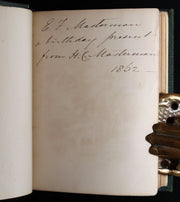 E F Masterman
a birthday present
from H. C. Masterman
1862